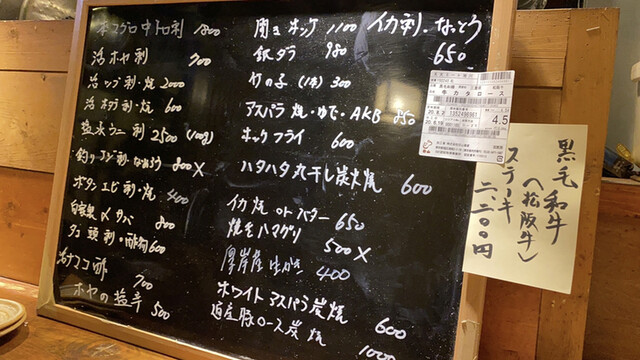 本マグロ中トロ刺 1800
活ホヤ刺 700
活ツブ刺・焼 2000
活ホタテ刺・焼 600
塩水ウニ刺 2500 (100g)
釣りアジ刺・なめろう 800 X
ボタンエビ刺・焼 400
自家製〆サバ 800
タコ頭刺・酢物 600
ナマコ酢 700
ホヤの塩辛 500
開きホッケ 1100
銀ダラ 980
竹の子(1本) 300
アスパラ焼・ゆで・AKB 850
ホッケフライ 600
ハタハタ丸干し炭火焼 600
イカ焼 orバター 650
焼きハマグリ 500 X
厚岸産生かき 400
ホワイトアスパラ炭焼 600
道産豚ロース炭焼 1000
イカ刺・なっとう
650
牛カタロース
4.5
黒毛和牛
(松阪牛)
ステーキ
二、二〇〇円